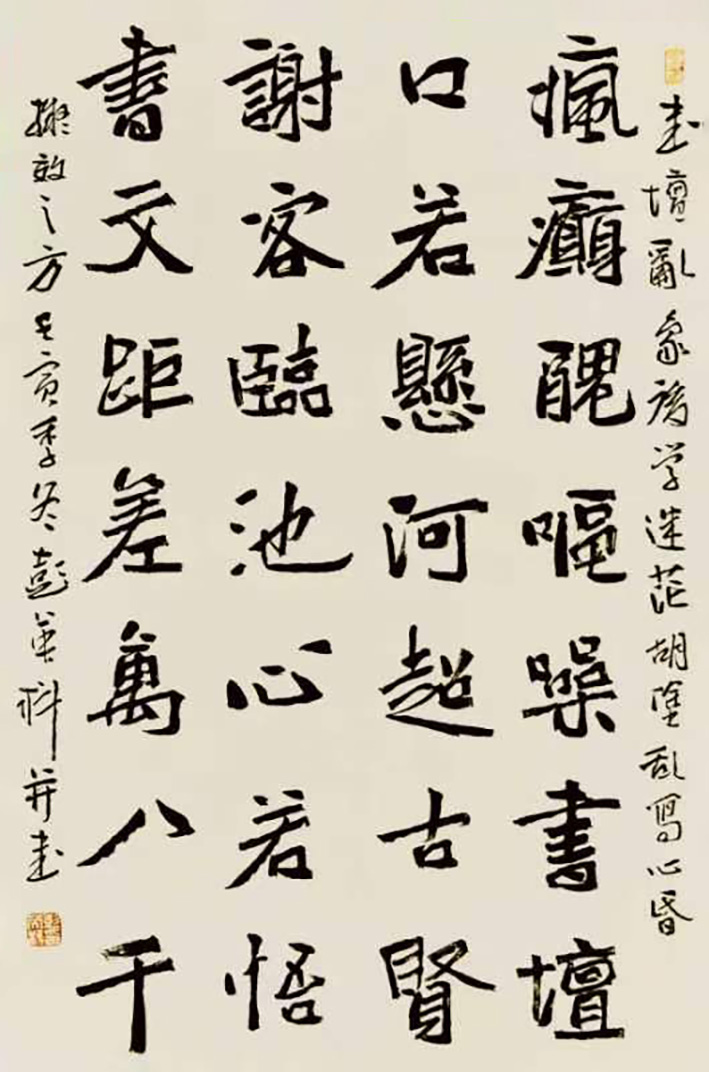 書壇亂象後学迷茫胡塗乱寫心昏
瘋癲醜嘔躁書壇
口若懸河超古賢
謝客臨池心若悟
書文距差萬八千
擬效之方壬寅季冬彭英科并書